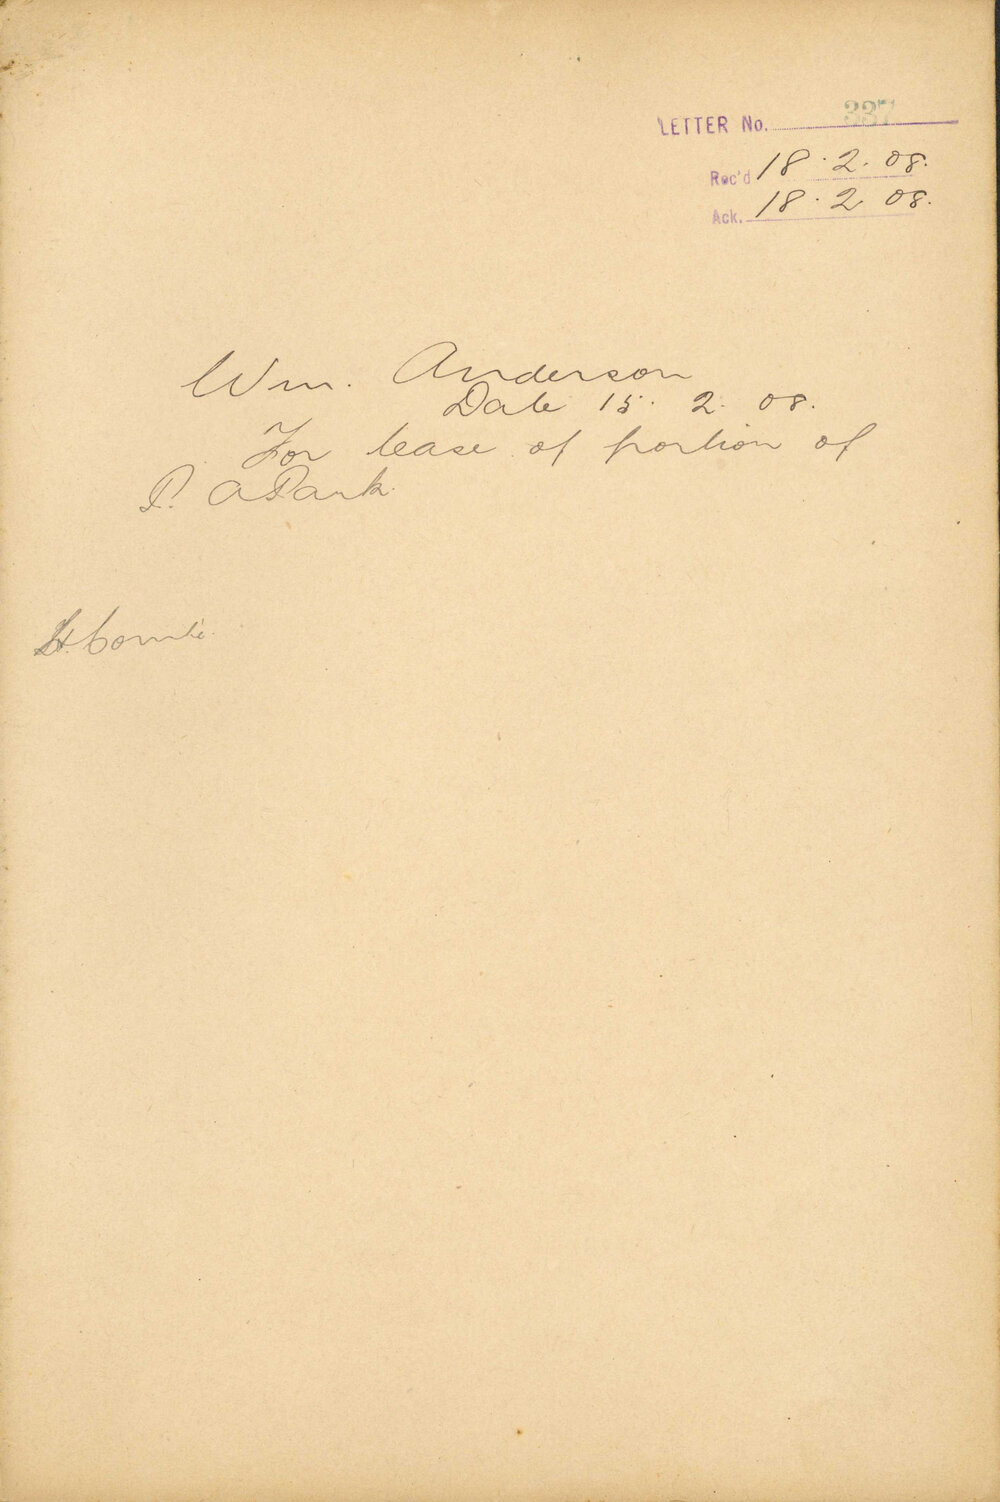 LETTER No. 337
Rec'd 18.2.08.
Ack. 18.2 08.
Wm. Anderson
Date 15. 2. 08.
For lease of portion of
P. A Park.